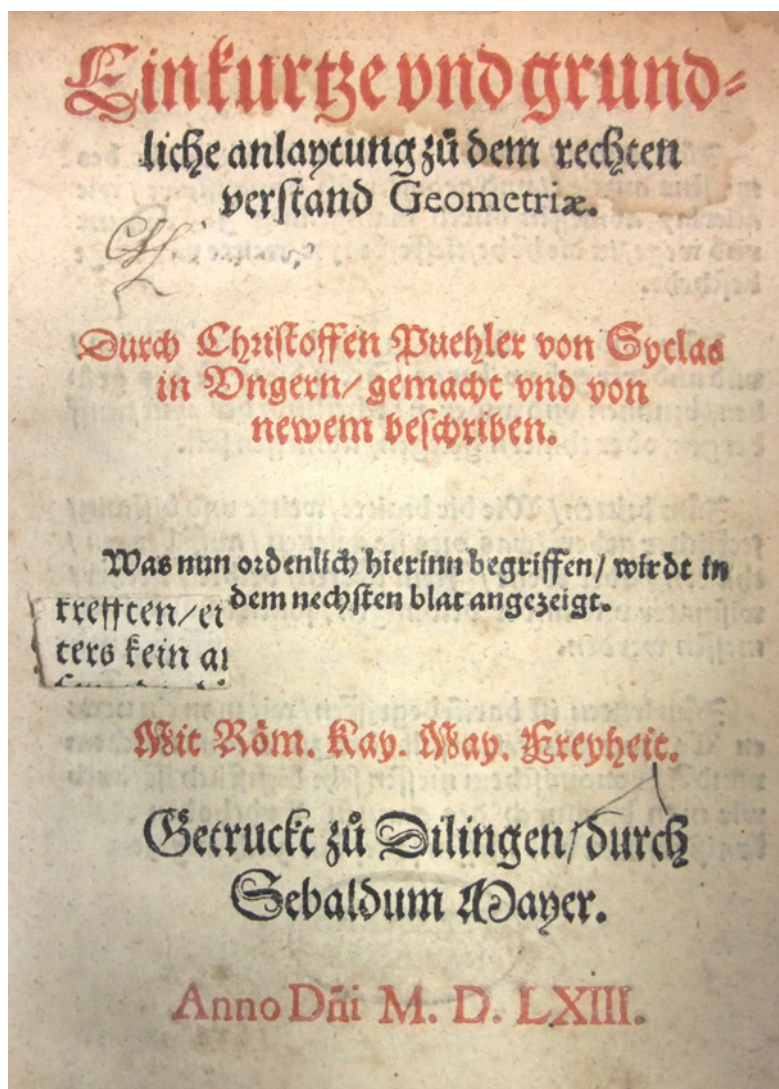 Ein kurtze vnd grund=
liche anlaytung zů dem rechten
verstand Geometriæ.
Durch Christoffen Puehler von Syclas
in Vngern/ gemacht vnd von
newem beschriben.
Was nun ordenlich hierinn begriffen/ wirdt in
dem nechsten blat angezeigt.
treffen/ei
ters kein
Mit Röm. Kay. May. Freyheit.
Getruckt zů Dilingen/durch
Sebaldum Mayer.
Anno Dñi M. D. LXIII.